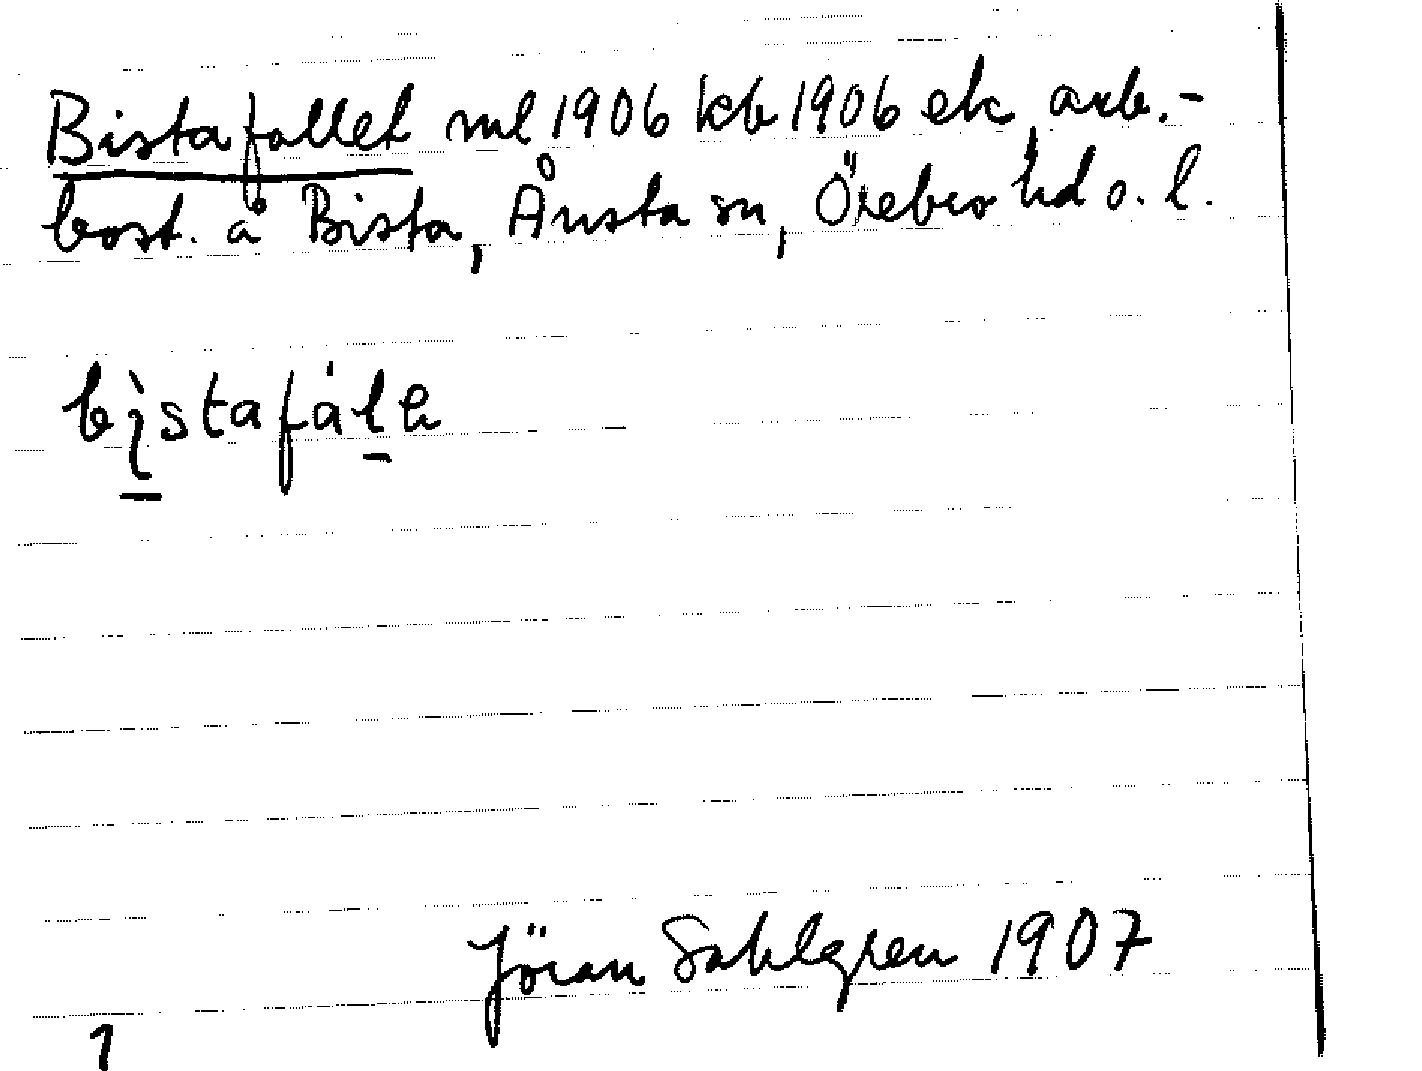 Bistafallet ml 1906 kb 1906 ek arb.-
bost. å Bista, Ånsta sn, Örebro hd o. l.
bistafála
Jöran Sahlgren 1907
1